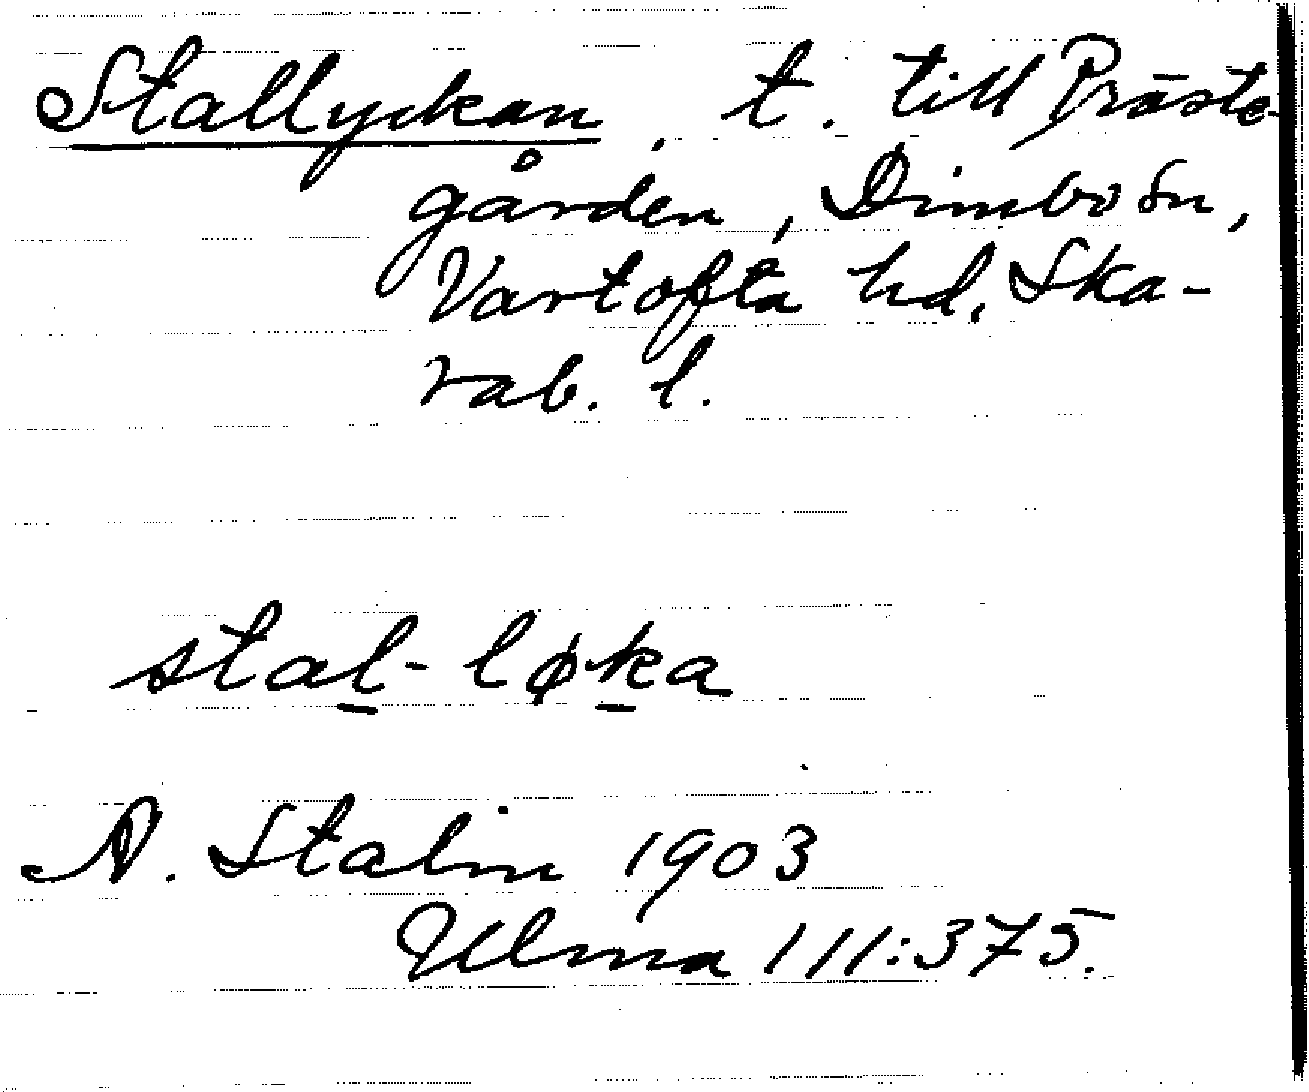 Stallyckan, t. till Präste-
gården, Dimbo sn,
Vartofta hd, Ska-
rab. l.
stal-løka
A. Stalin 1903
Ulma 111:375.